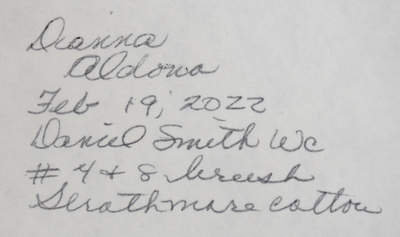 Deanna
Aldowa
Feb 19, 2022
Daniel Smith WC
# 4 + 8 brush
Strathmore cotton